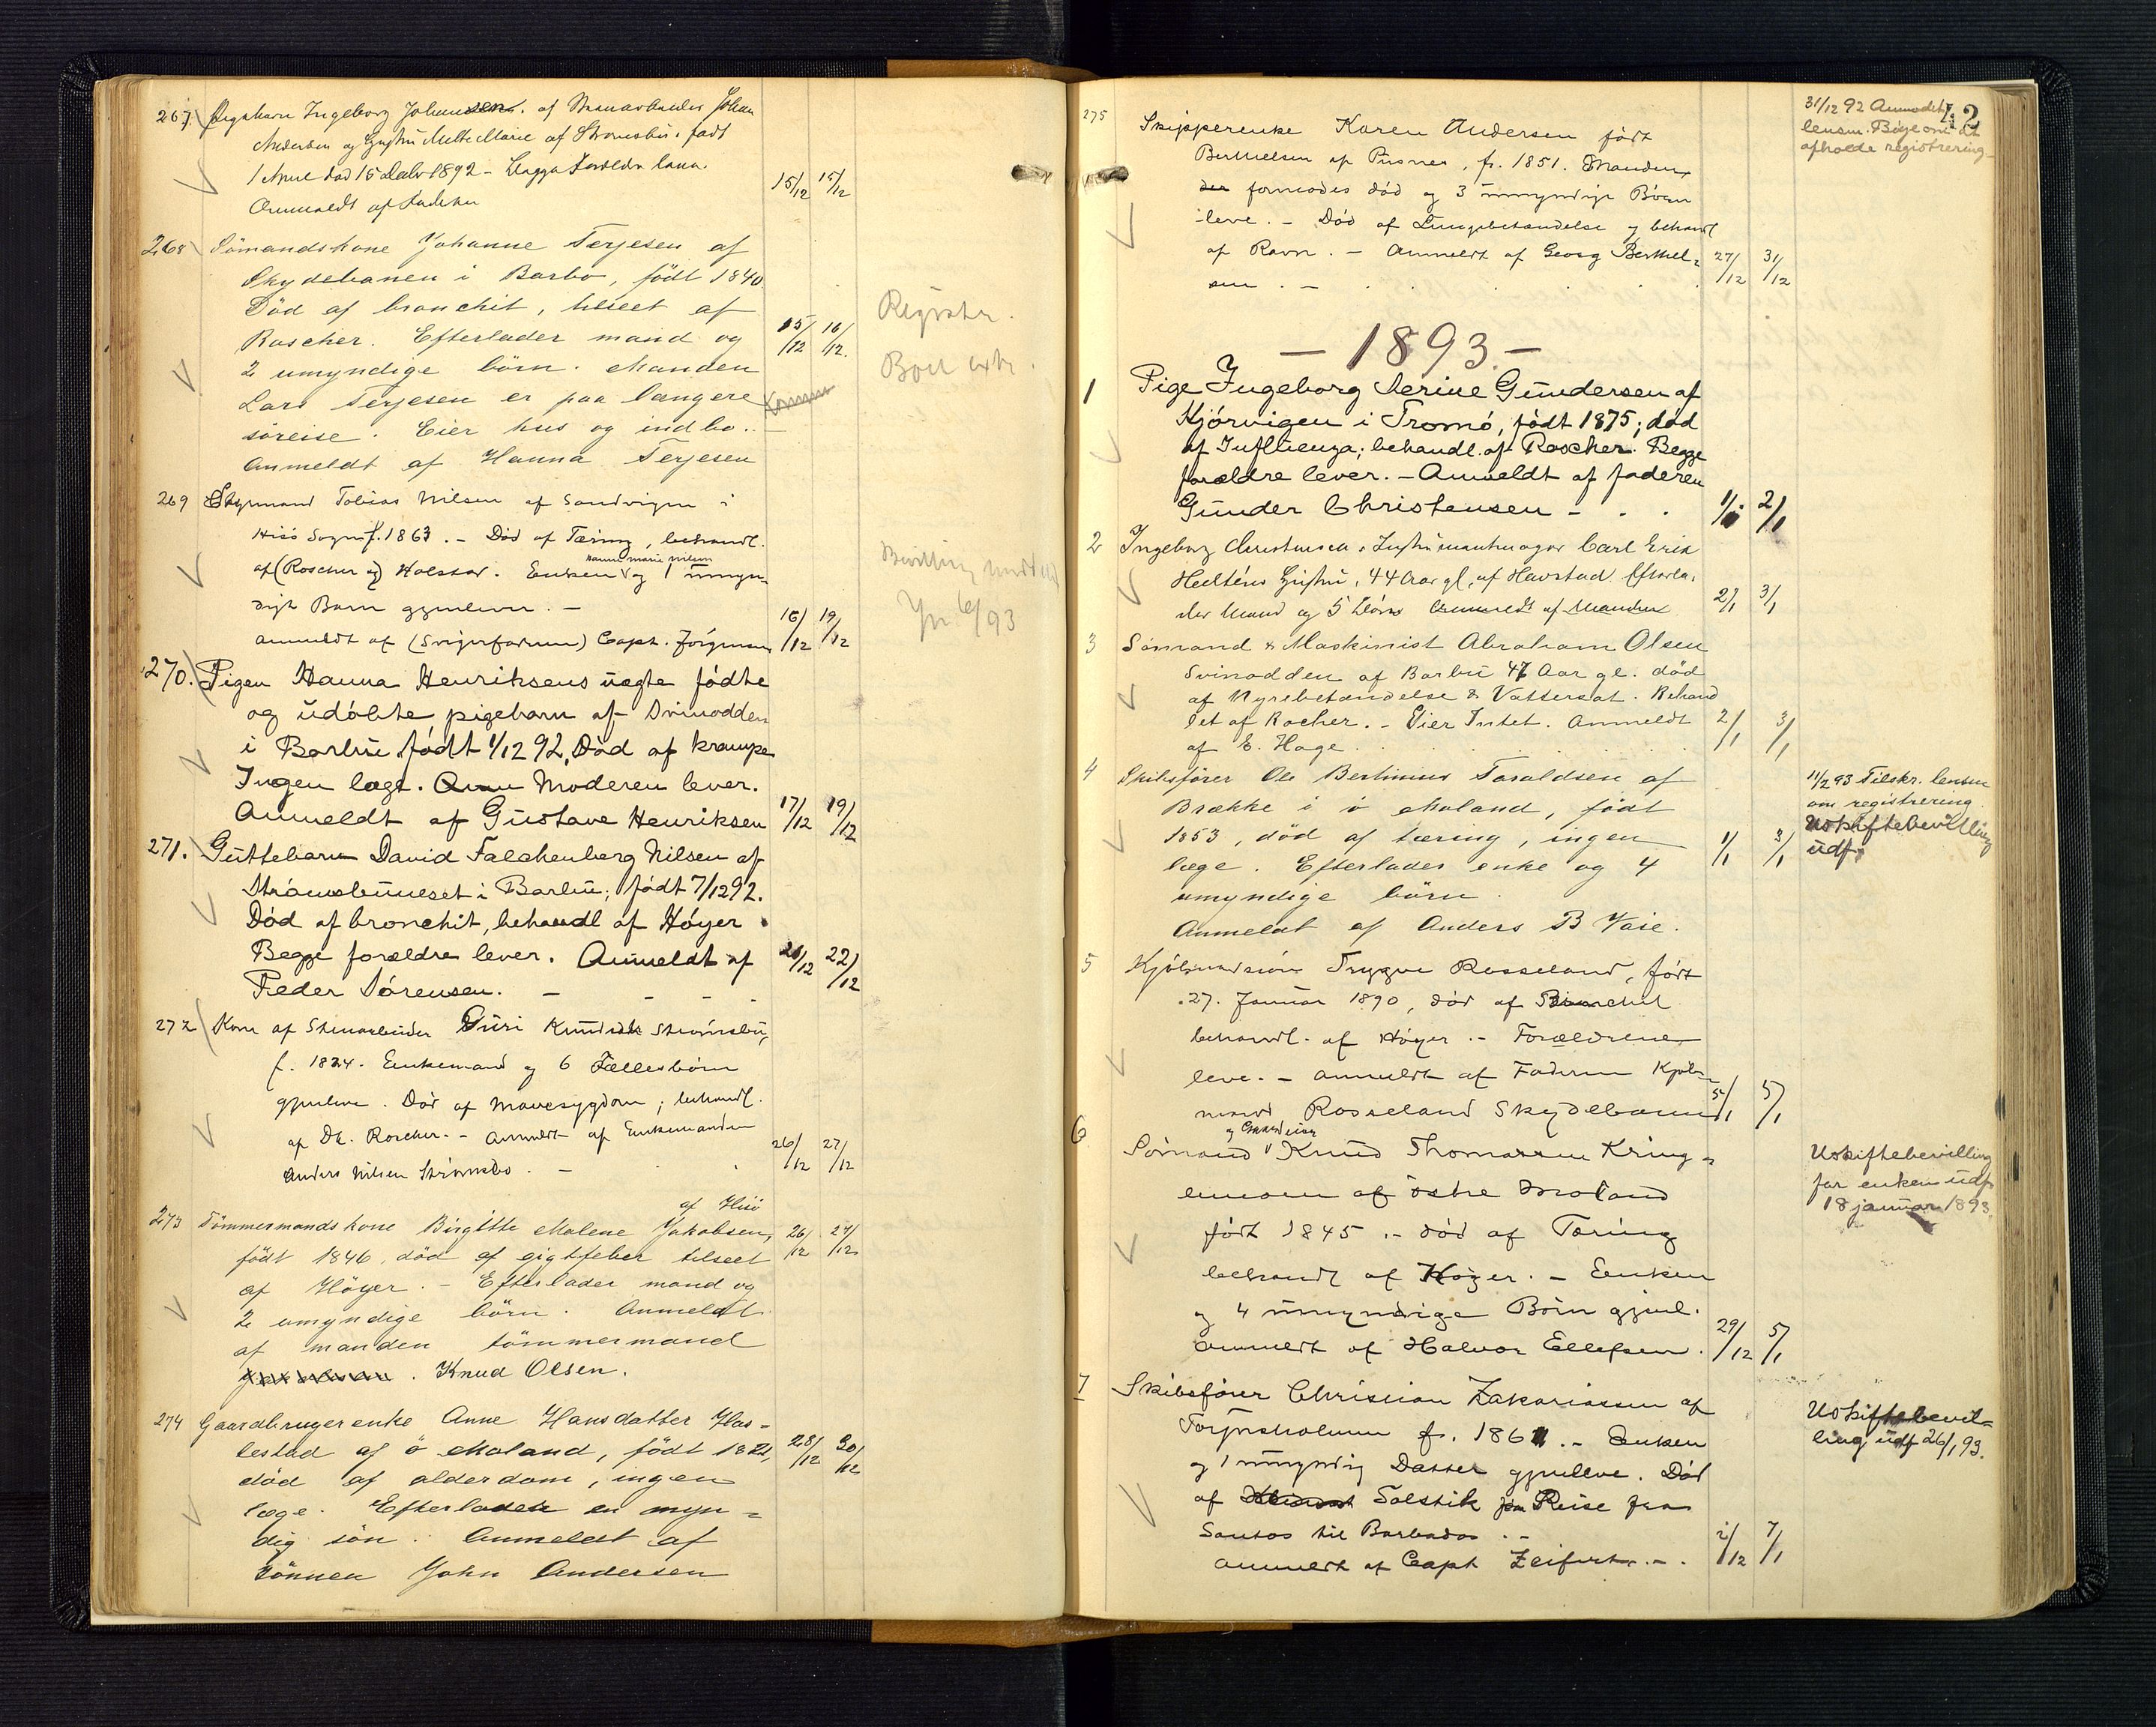 267. Pigebarn Ingeborg Johannsen. af Stenarbeider Johan
Andersen og Hustru Mette Marie af Strømsbu. født
1 April død 15 Decbr 1892 - Begge Forældre leve.
Anmeldt af Faderen 15/12 15/12
268 Sömandskone Johanne Terjesen af
Skydebanen i Barbo, födt 1840
Död af bronchit, tilseet af
Roscher. Efterlader mand og 15/12 16/12.
2 umyndige börn. Manden
Lars Terjesen er paa længere
söreise. Eier hus og indbo.
Anmeldt af Hanna Terjesen
Registr.
Boet
269 Styrmand Tobias Nilsen af Sandvigen i
Hisö Sogn f. 1863. - Död af Tæring, behandl.
Hanne Marie Nilsen
af (Roscher og) Holstad. Enken og 1 umyn-
digt Barn gjenlever. -
anmeldt af (Svigerfaderen) Capt. Jörgensen 16/12 19/12
Bevilling
270. Pigen Hanna Henriksens uægte fødte
og udøbte pigebarn af Svinodden
i Barbu født 1/12 92. Död af krampe
Ingen læge. Moderen lever.
Anmeldt af Gustave Henriksen 17/12 19/12
271. Guttebarn David Falchenberg Nilsen af
Strømsbuneset i Barbu; født 7/12 92.
Död af bronchit, behandl af Høyer
Begge forældre lever. Anmeldt af 20/12 22/12
Peder Sørensen. - - - -
272 Kone af Stenarbeider Guri Knudsdtr Strømsbu,
f. 1824. Enkemand og 6 Fællesbörn
gjenleve. Död af Mavesygdom; behandl.
af Dr. Roscher. - Anmeldt af Enkemanden
Anders Nilsen Strømsbo. - 26/12 27/12
af Hisö
273 Tömmermandskone Birgitte Malene Jakobsen, 26/12 27/12
födt 1846, död af gigtfeber tilseet
af Höyer. - Efterlader mand og
2 umyndige börn. Anmeldt
af manden tömmermand
Knud Olsen.
274 Gaardbrugerenke Anne Hansdatter Has-
lestad af ö Moland, födt 1821, 28/12 30/12
död af alderdom, ingen
læge. Efterlader en myn-
dig sön. Anmeldt af
Sönnen John Andersen
42
275 Skipperenke Karen Andersen født
Berthelsen af Pusnes, f. 1851. Manden
formodes död og 3 umyndige Börn
leve. - Död af Lungebetændelse og behandl
af Ravn. - Anmeldt af Georg Berthel-
sen. - 27/12 31/12
31/12 92 Anmodet
lensm. Bøge om at
afholde registrering -
- 1893. -
1 Pige Ingeborg Serine Gundersen af
Kjørvigen i Tromø, født 1875; død
af Influenza; behandl. af Roscher. Begge
forældre lever. - Anmeldt af faderen
Gunder Christensen - . . 1/1 2/1
2 Ingeborg Christensen, Instrumentmager Carl Erik
Hulténs Hustru, 44 Aar gl, af Havstad Efterla-
der Mand og 5 Börn Anmeldt af Manden 2/1 3/1
3 Sömand & Maskinist Abraham Olsen
Svinodden af Barbu 47 Aar gl. död
af Nyrebetændelse & Vattersot. Behand
let af Rocher. - Eier Intet. Anmeldt 2/1 3/1
af E. Hage
4 Skibsförer Ole Bertinius Taraldsen af
Brække i ö Moland, födt
1853, död af tæring, ingen 1/1 3/1
læge. Efterlader enke og 4
umyndige börn.
Anmeldt af Anders B Vaie.
11/2 93 Tilskr. lensm
om registrering.
Uskiftebevilling
udf.
5 Kjöbmandsön Trygve Rosseland, födt
27. Januar 1890, död af Bronchit
behandl. af Höyer. - Forældrene
leve. - anmeldt af Faderen Kjöb-
mand Rosseland Skydebanen 5/1 5/1
6 Sömand Knud Thomassen Kring-
lemoen af östre Moland
födt 1845. - död af Tæring
behandl af Höyer. - Enken
og 4 umyndige Börn gjenl.
anmeldt af Halvor Ellefsen. 29/12 5/1
Uskiftebevilling
for enken udf.
18 januar 1893.
7 Skibsförer Christian Zakariassen af
Torjusholmen f. 1861. - Enken
og 1 umyndig Datter gjenleve. Död
af Solstik paa Reise fra
Santos til Barbados. -
anmeldt af Capt Zeifert. - . 2/12 7/1
Uskiftebevil-
ling udf 26/1 93.